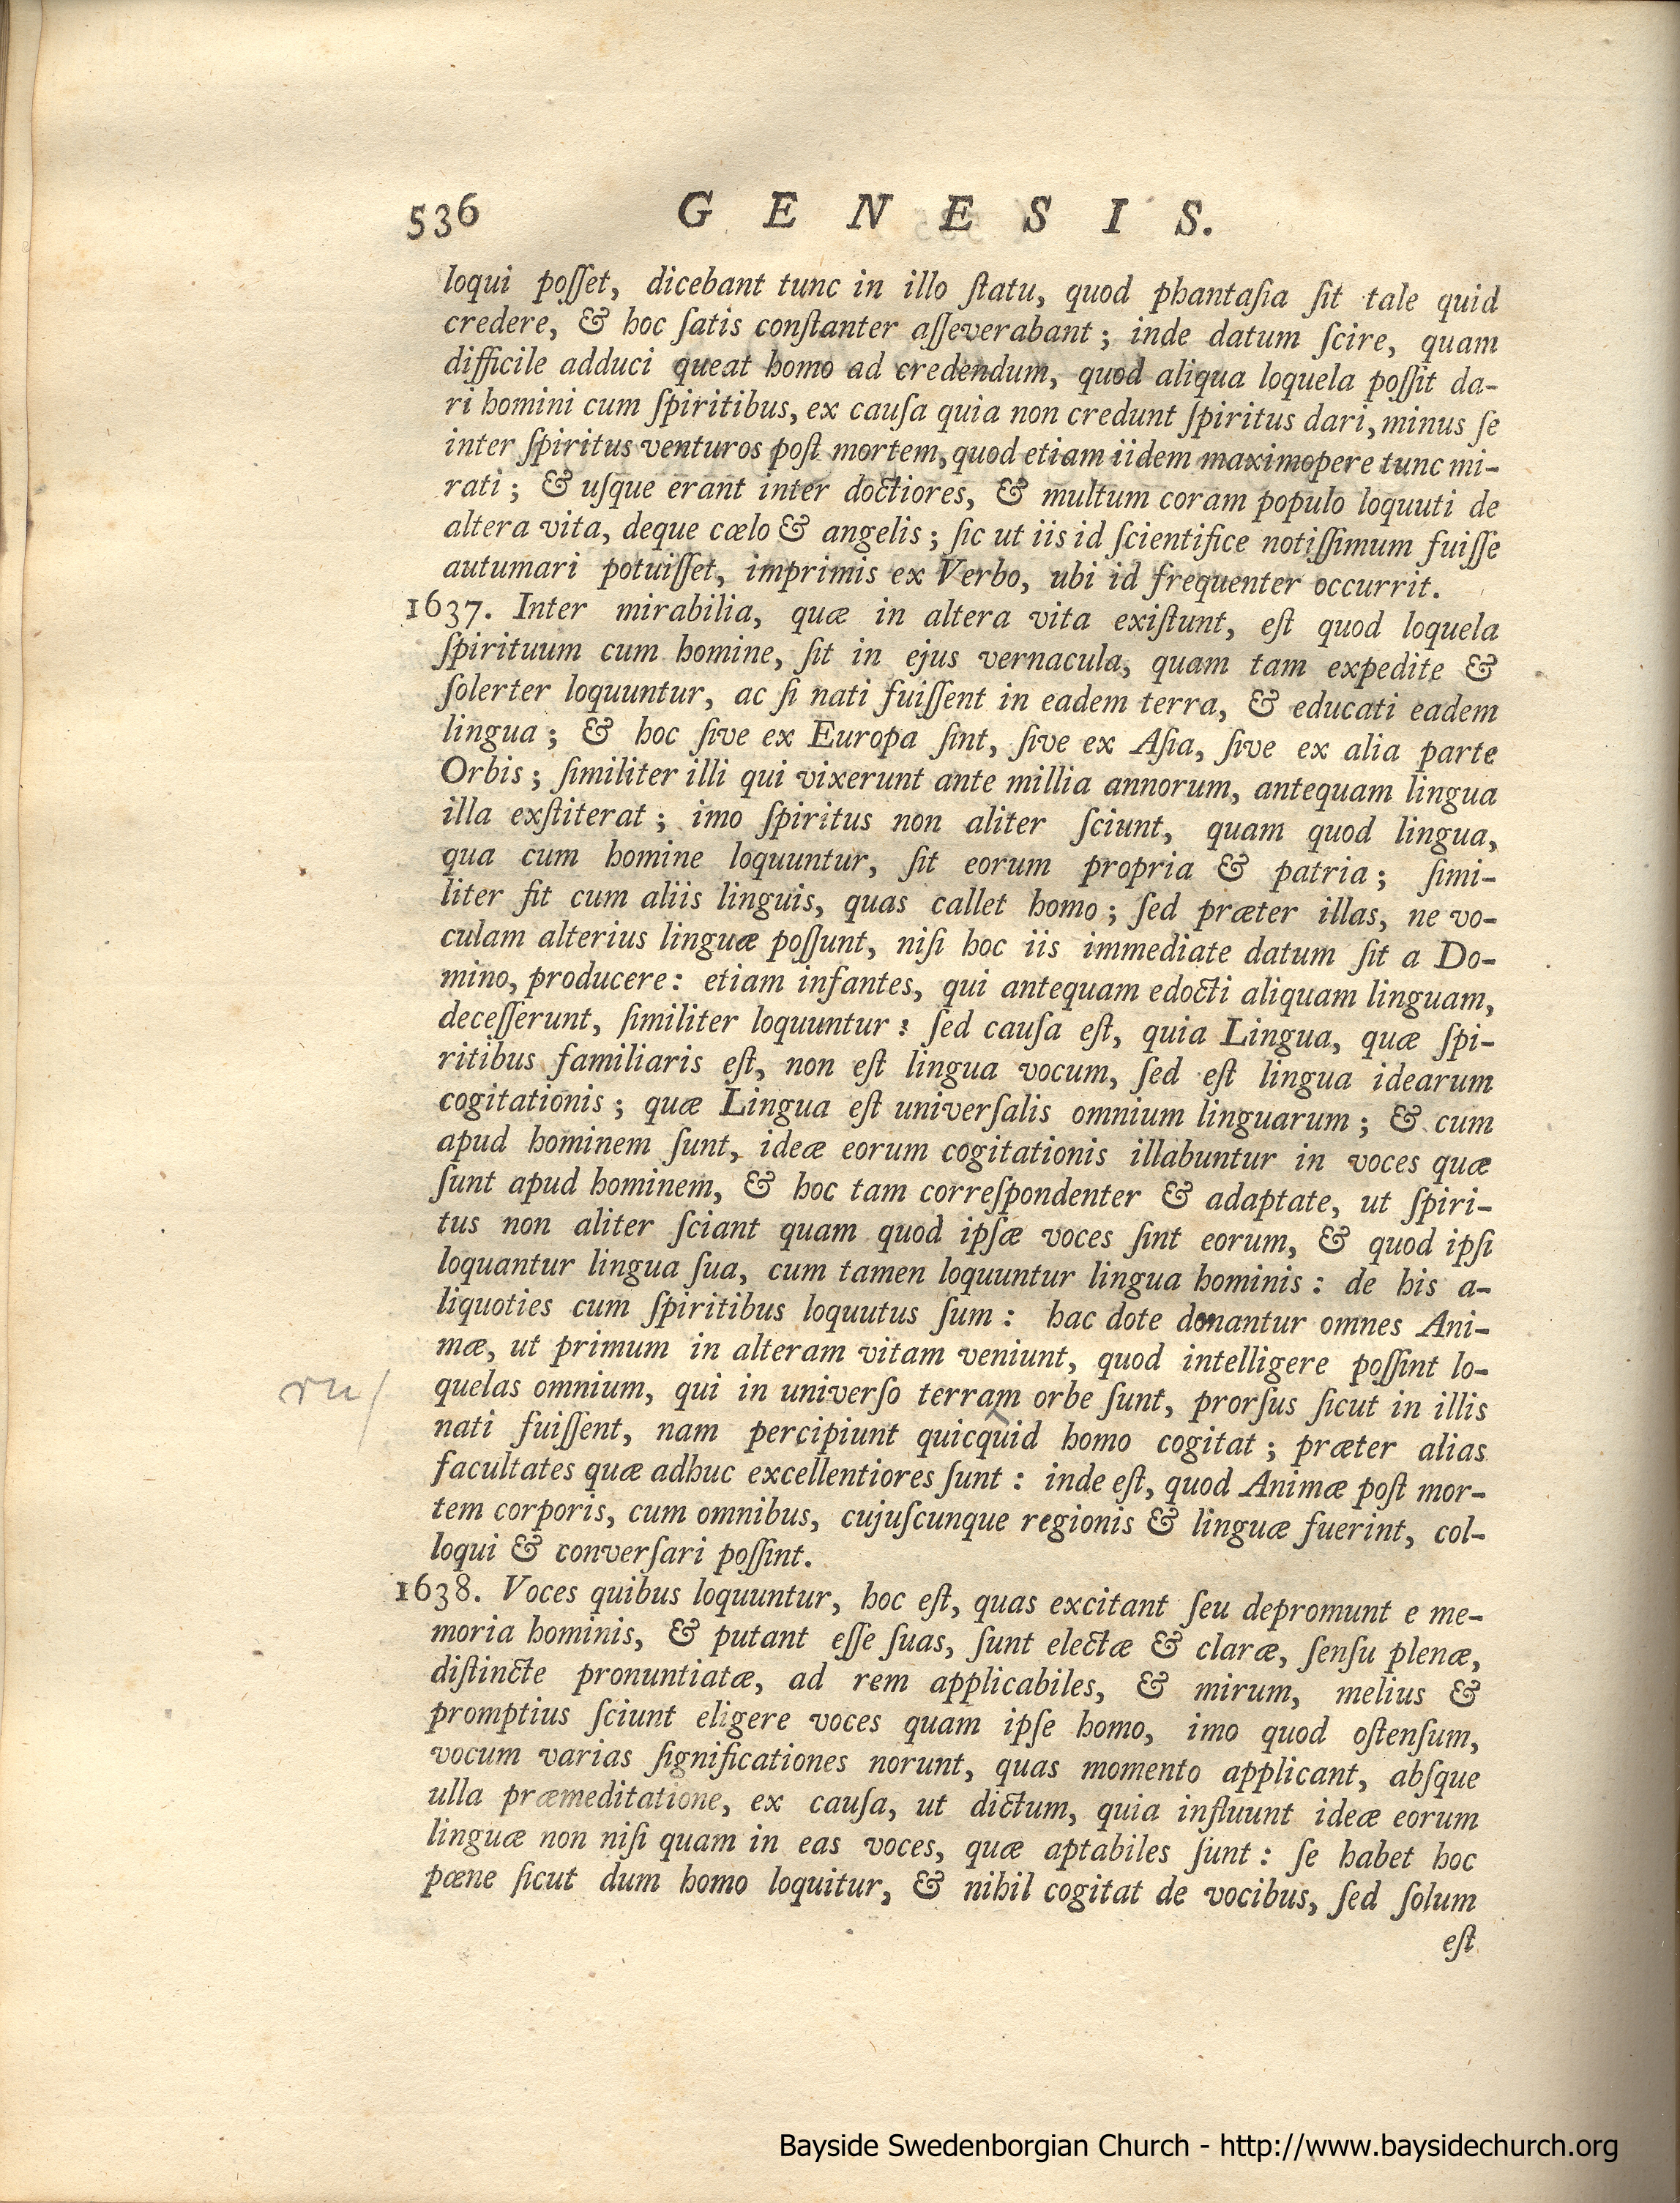 536 GENESIS.
loqui poſſet, dicebant tunc in illo ſtatu, quod phantaſia ſit tale quid
credere, & hoc ſatis conſtanter aſſeverabant; inde datum ſcire, quam
difficile adduci queat homo ad credendum, quod aliqua loquela poſſit da-
ri homini cum ſpiritibus, ex cauſa quia non credunt ſpiritus dari, minus ſe
inter ſpiritus venturos poſt mortem, quod etiam iidem maximopere tunc mi-
rati; & uſque erant inter doctiores, & multum coram populo loquuti de
altera vita, deque cælo & angelis; ſic ut iis id ſcientifice notiſſimum fuiſſe
autumari potuiſſet, imprimis ex Verbo, ubi id frequenter occurrit.
1637. Inter mirabilia, quæ in altera vita exiſtunt, eſt quod loquela
ſpirituum cum homine, ſit in ejus vernacula, quam tam expedite &
ſolerter loquuntur, ac ſi nati fuiſſent in eadem terra, & educati eadem
lingua; & hoc ſive ex Europa ſint, ſive ex Aſia, ſive ex alia parte
Orbis; ſimiliter illi qui vixerunt ante millia annorum, antequam lingua
illa exſtiterat; imo ſpiritus non aliter ſciunt, quam quod lingua,
qua cum homine loquuntur, ſit eorum propria & patria; ſimi-
liter fit cum aliis linguis, quas callet homo; ſed præter illas, ne vo-
culam alterius linguæ poſſunt, niſi hoc iis immediate datum ſit a Do-
mino, producere: etiam infantes, qui antequam edocti aliquam linguam,
deceſſerunt, ſimiliter loquuntur: ſed cauſa eſt, quia Lingua, quæ ſpi-
ritibus familiaris eſt, non eſt lingua vocum, ſed eſt lingua idearum
cogitationis; quæ Lingua eſt univerſalis omnium linguarum; & cum
apud hominem ſunt, ideæ eorum cogitationis illabuntur in voces quæ
ſunt apud hominem, & hoc tam correſpondenter & adaptate, ut ſpiri-
tus non aliter ſciant quam quod ipſæ voces ſint eorum, & quod ipſi
loquantur lingua ſua, cum tamen loquuntur lingua hominis: de his a-
liquoties cum ſpiritibus loquutus ſum: hac dote donantur omnes Ani-
mæ, ut primum in alteram vitam veniunt, quod intelligere poſſint lo-
ru/ quelas omnium, qui in univerſo terram orbe ſunt, prorſus ſicut in illis
nati fuiſſent, nam percipiunt quicquid homo cogitat; præter alias
facultates quæ adhuc excellentiores ſunt: inde eſt, quod Animæ poſt mor-
tem corporis, cum omnibus, cujuſcunque regionis & linguæ fuerint, col-
loqui & converſari poſſint.
1638. Voces quibus loquuntur, hoc eſt, quas excitant ſeu depromunt e me-
moria hominis, & putant eſſe ſuas, ſunt electæ & claræ, ſenſu plenæ,
diſtincte pronuntiatæ, ad rem applicabiles, & mirum, melius &
promptius ſciunt eligere voces quam ipſe homo, imo quod oſtenſum,
vocum varias ſignificationes norunt, quas momento applicant, abſque
ulla præmeditatione, ex cauſa, ut dictum, quia influunt ideæ eorum
linguæ non niſi quam in eas voces, quæ aptabiles ſunt: ſe habet hoc
pæne ſicut dum homo loquitur, & nihil cogitat de vocibus, ſed ſolum
eſt
Bayside Swedenborgian Church - http://www.baysidechurch.org